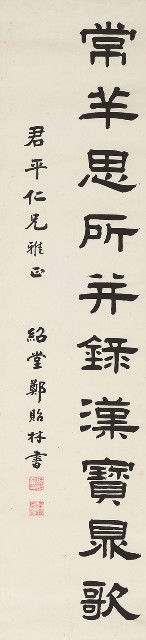 常羊思所并錄漢寶鼎歌
君平仁兄雅正
紹堂鄭貽林書